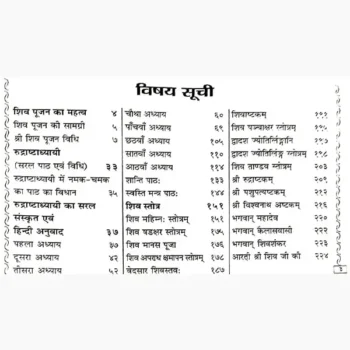 विषय सूची
शिव पूजन का महत्व ४
शिव पूजन की सामग्री ५
श्री शिव पूजन विधि ७
रुद्राष्टाध्यायी
(सरल पाठ एवं विधि) ३३
रुद्राष्टाध्यायी में नमक-चमक
का पाठ का विधान ३५
रुद्राष्टाध्यायी का सरल
संस्कृत एवं
हिन्दी अनुवाद ३७
पहला अध्याय ३७
दूसरा अध्याय ४२
तीसरा अध्याय ५२
चौथा अध्याय ६०
पाँचवाँ अध्याय ६९
छठवाँ अध्याय १०५
सातवाँ अध्याय ११०
आठवाँ अध्याय ११४
शान्ति पाठः १३३
स्वस्ति मन्त्र पाठः १४४
शिव स्तोत्र १५१
शिव महिम्नः स्तोत्रम् १५१
शिव षडक्षर स्तोत्रम् १७५
शिव मानस पूजा १७६
शिव अपराध क्षमापन स्तोत्रम् १७९
वेदसार शिवस्तवः १८७
शिवाष्टकम्
शिव पञ्चाक्षर स्तोत्रम्
द्वादश ज्योतिर्लिङ्गानि
द्वादश ज्योतिर्लिङ्ग स्तोत्रम् १९८
शिव ताण्डव स्तोत्रम् २०३
श्री रुद्राष्टकम् २०९
श्री पशुपत्यष्टकम् २१२
श्री विश्वनाथ अष्टकम्
भगवान् महादेव २२०
भगवान् कैलासवासी २२१
भगवान् शिवशंकर २२३
आरती श्री शिव जी की २२४
३